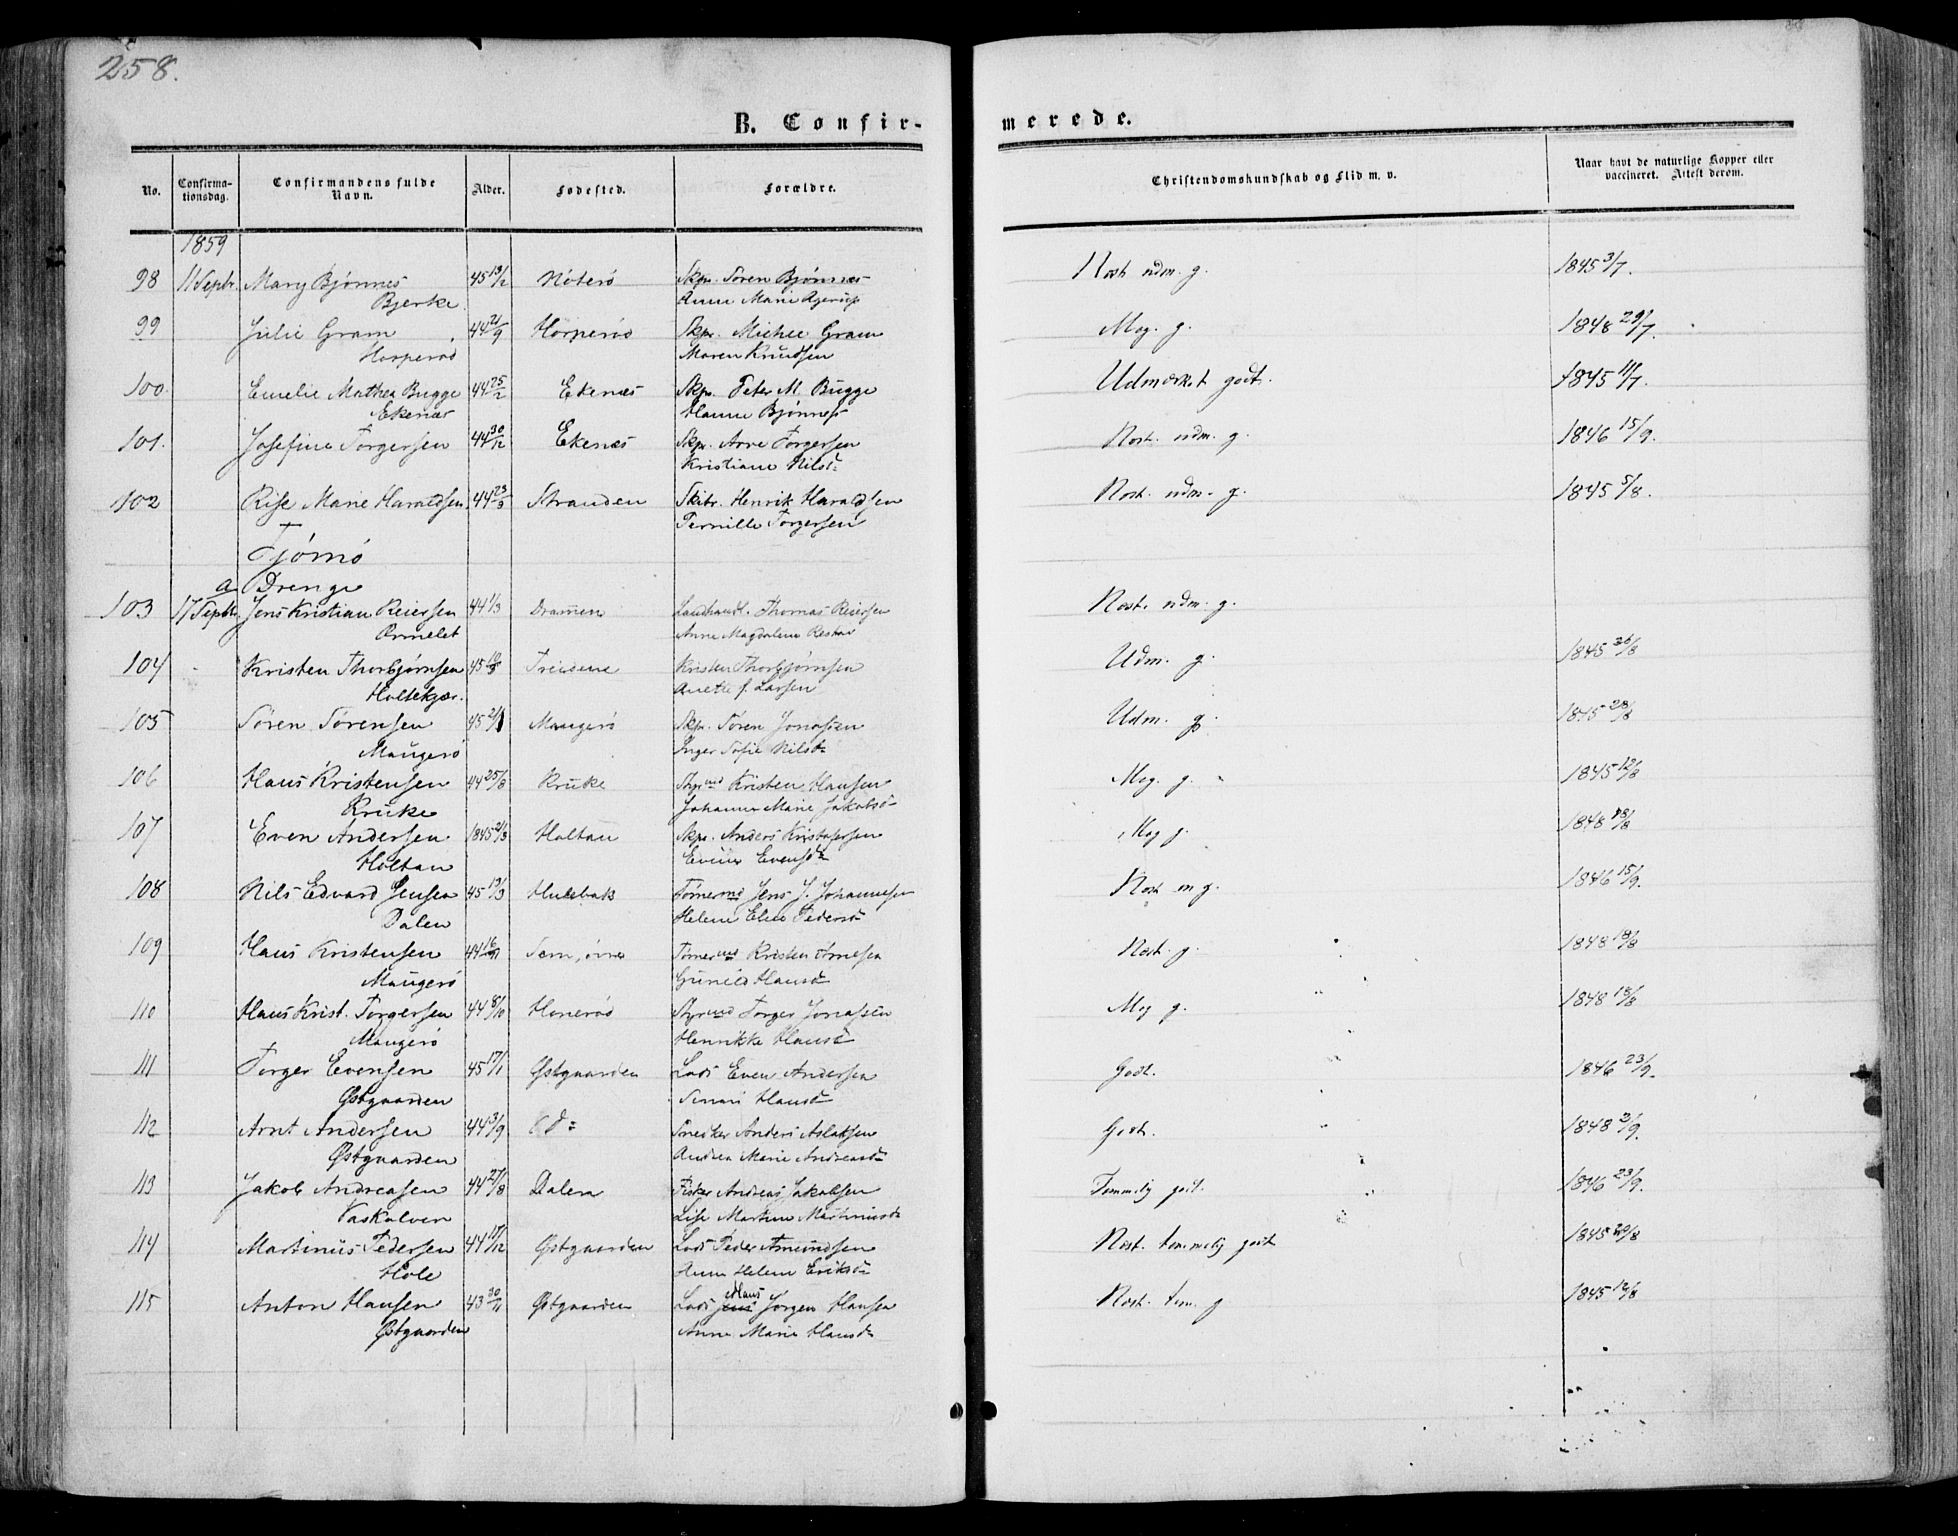 258.
B. Confir-
merede.
No.
Confirma-
tionsdag.
Confirmandens fulde
Navn.
Alder.
Fødested.
Forældre.
Christendomskundskab og Flid m. v.
Naar havt de naturlige Kopper eller
vaccineret. Attest derom.
1859
98 11 Septbr. Mary Bjønnes 45 13/12 Nøterø Skpr. Søren Bjønnes Næst. udm. g. 1845 3/7.
Bjerke Anne Marie Agerup
99 Julie Gram 44 21/9 Horperød Skpr. Michel Gram Meg. g. 1848 29/7.
Horperød Maren Knudsen
100. Emelie Mathea Bugge 44 25/2 Ekenæs Skpr. Peter M. Bugge Udmærket godt. 1845 11/7.
Ekenæs Hanne Bjønnes
101. Josefine Torgersen 44 30/12 Ekenæs Skpr. Arve Torgersen Næst. udm. g. 1846 15/9.
Kristiane Nilsd.
102 Marie Haraldsen 44 23/3 Stranden Henrik Haraldsen Næst. udm. g. 1845 5/8.
Pernille Torgersen
Tjømø
a Drenge
103 17 Septbr. Jens Kristian Reiersen 44 1/3 Drammen Landhandl. Thomas Reiersen Næst. udm. g.
Ormelet Anne Magdalene
104 Kristen Thorbjørnsen 45 Kristen Thorbjørnsen Udm. g. 1845 26/8
Holtekjær. Anette f. Larsen
105 Søren Sørensen 45 2/1 Maugerø Skpr. Søren Jonassen Udm. g. 1845 28/8
Maugerø Inger Sofie Nilsd.
106 Hans Kristensen 44 25/8 Kruke Styrmd Kristen Hansen Meg. g. 1845 12/8
Kruke Johanne Marie Jakobsd.
107 Even Andersen 1845 2/3 Holtan Skpr. Anders Kristofersen Meg g. 1848 18/8
Holtan Evensd.
108 Nils Edvard Jensen 45 19/3 Hulebak Tømermd Jens J. Johannesen Næst m g. 1846 15/9.
Dalen Helene Eline Pedersd.
109 Hans Kristensen 44 16/11 Sem, øvre Tømermd Kristen Næst. g. 1848 18/8
Maugerø Gunild Hansd.
110 Hans Krist. Torgersen 44 8/10 Honerød Styrmd Torger Jonassen Meg g. 1848 18/8
Maugerø Henrikke Hansd.
111 Torger Evensen 45 17/1 Østgaarden Lods Even Andersen Godt. 1846 23/9.
Østgaarden Hansd.
112 Arnt Andersen 44 3/9 Snedker Anders Aslaksen Godt. 1848 2/9.
Østgaarden Andrea Marie Andreasd.
113 Jakob Andreasen 44 27/8 Dalen Fisker Andreas Jakobsen Temmelig godt. 1846 23/9.
Vaskalven Lise Martine Martinusd.
114 Martinus Pedersen 44 17/12 Østgaarden Lods Peder Amundsen Næst. temmelig godt 1845 20/8
Hole Anne Helene Eriksd.
115 Anton Hansen 43 30/11 Østgaarden Lods Hans Jørgen Hansen Næst. tem. g 1845 12/8
Østgaarden Anne Marie Hansd.